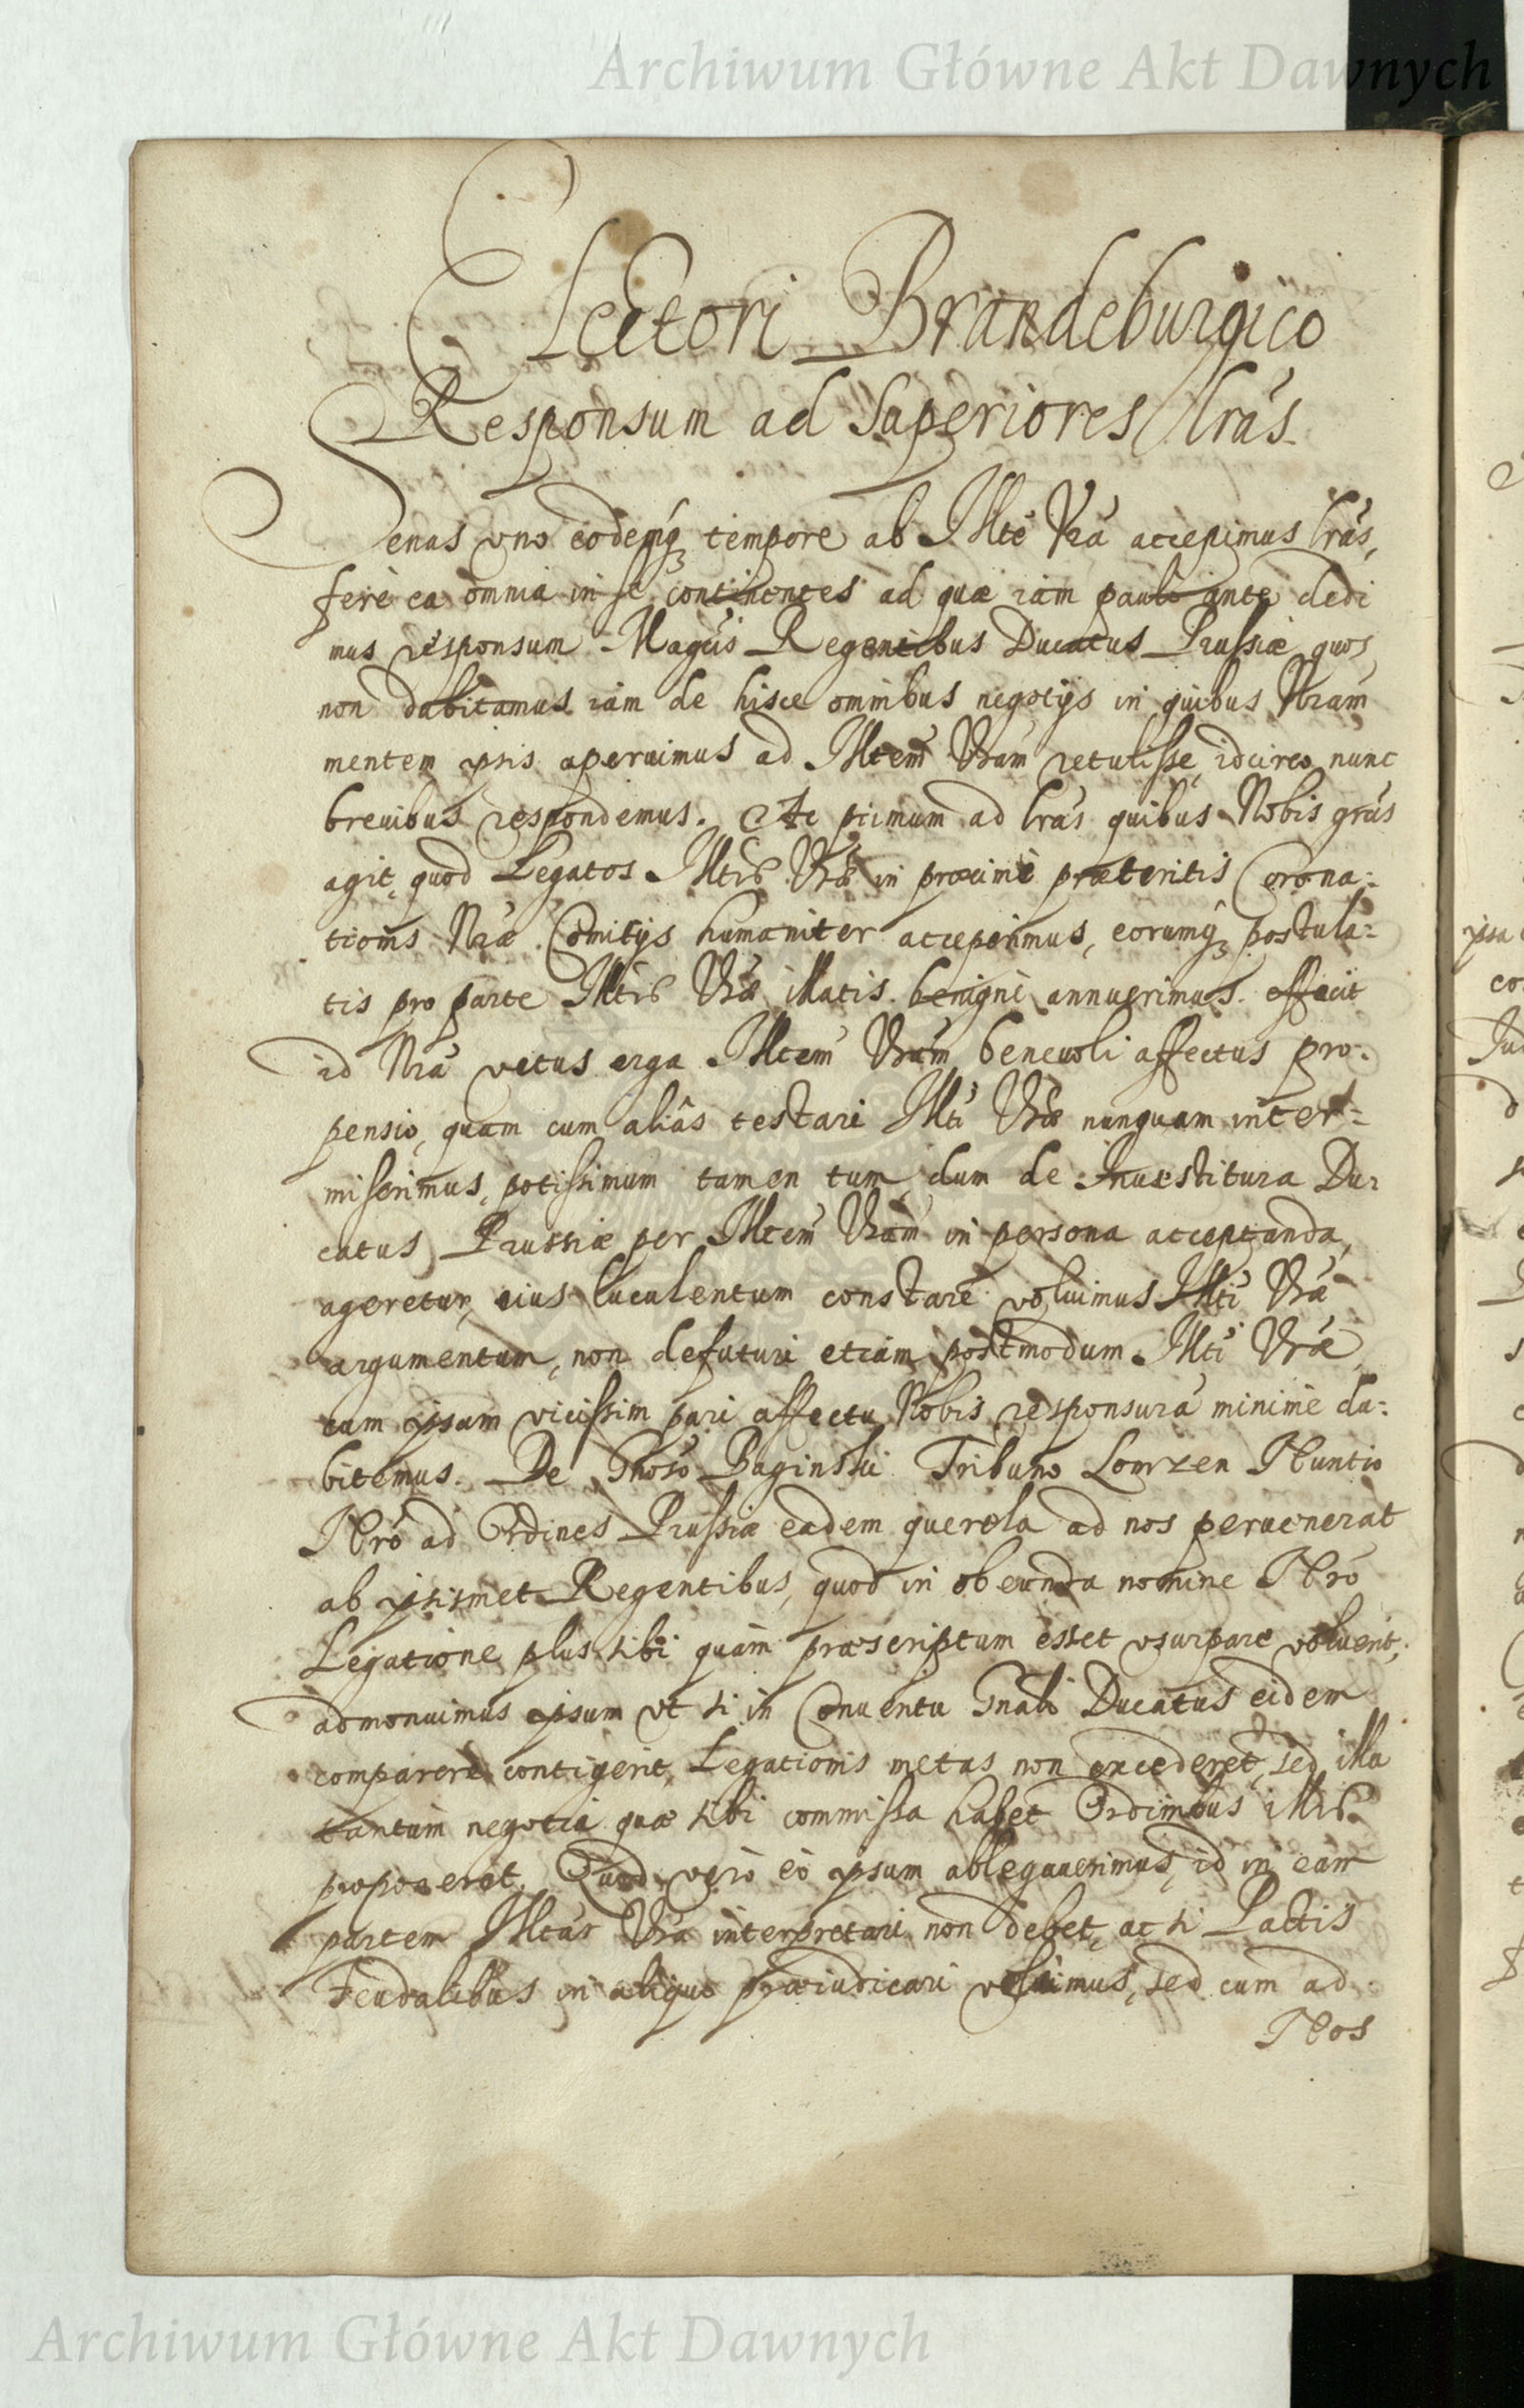 Archiwum Główne Akt Dawnych
Electori Brandeburgico
Responsum ad Superiores Lrás
Senas uno eodemq́ʒ tempore ab Illte Vrá accepimus lrás,
ferè ea omnia in se continentes ad quæ iam paulo ante dedi
mus responsum Magcis Regentibus Ducatus Prussiæ quos
non dubitamus iám de hisce omnibus negotijs in quibus Nram
mentem ipsis aperuimus ad Illtem Vram retulisse, idcirco nunc
breuibus respondemus. Ac primum ad lrás quibus Nobis grás
agit, quod Legatos Illtis Vræ in proximè præteritis Corona:
tionis Nræ Comitijs humaniter acceperimus, eorumq́ʒ postula:
tis pro parte Illtis Vræ illatis benignè annuerimus. effecit
id Nrá vetus erga Illtem Vram beneuoli affectus pro:
pensio, quam cum aliâs testari Illti Vræ nunquam inter:
misserimus, potissimum tamen tum, dum de Inuestitura Du:
catus Prussiæ per Illtem Vram in persona acceptanda,
ageretur, eius luculentum constare voluimus Illti Vræ
argumentum, non defuturi etiam postmodum Illti Vræ,
cum ipsam vicissim pari affectu Nobis responsurá minimè du:
bitemus. De Gnoso Baginski Tribuno Lomzen Nuntio
Nro ad Ordines Prussiæ eadem querela ad nos peruenerat
ab ipsismet Regentibus, quod in obeunda nomine Nro
Legatione plus sibi quàm præscriptum esset vsurpare voluerit,
admonuimus ipsum vt si in Conuentu Gnali Ducatus eidem
comparere contigerit, Legationis metas non excederet, sed illa
tantùm negotia quæ sibi commissa habet Ordinibus illis
proponeret. Quod verò eò ipsum ablegauerimus, id in eam
partem Illtas Vra interpretari non debet, ac si Pactis
Feudalibus in aliquo præiudicari voluimus, sed cum ad
Nos
Archiwum Główne Akt Dawnych